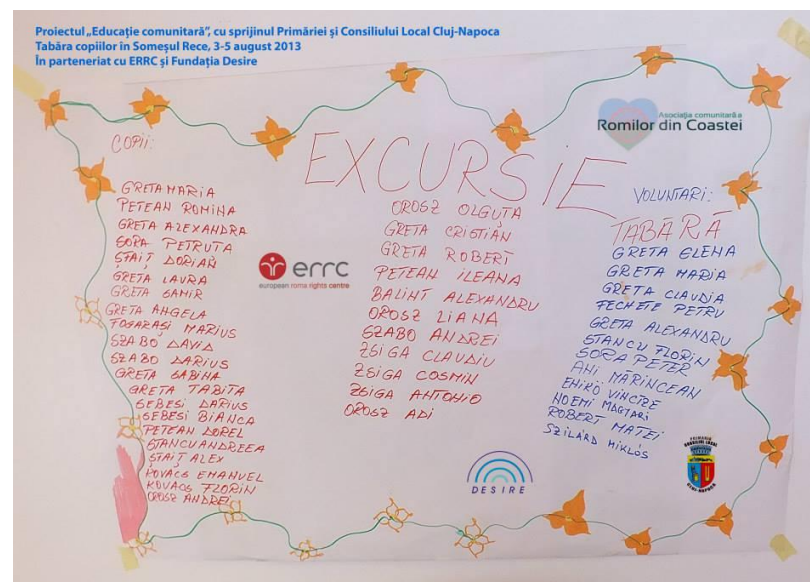 Proiectul „Educație comunitară”, cu sprijinul Primăriei și Consiliului Local Cluj-Napoca
Tabăra copiilor în Someșul Rece, 3-5 august 2013
În parteneriat cu ERRC și Fundația Desire
Asociația comunitară a
Romilor din Coastei
EXCURSIE
TABĂRĂ
COPII:
GRETA MARIA
PETEAN ROMINA
GRETA ALEXANDRA
SORA PETRUTA
STAIȚ DORIAN
GRETA LAURA
GRETA SAMIR
GRETA ANGELA
FOGARASI MARIUS
SZABO DAVID
SZABO DARIUS
GRETA SABINA
GRETA TABITA
SEBESI DARIUS
SEBESI BIANCA
PETEAN DOREL
STANCU ANDREEA
ȘTAIȚ ALEX
KOVACS EMANUEL
KOVACS FLORIN
OROSZ ANDREI
errc
european roma rights centre
OROSZ OLGUȚA
GRETA CRISTIAN
GRETA ROBERT
PETEAN ILEANA
BALINT ALEXANDRU
OROSZ LIANA
SZABO ANDREI
ZSIGA CLAUDIU
ZSIGA COSMIN
ZSIGA ANTONIO
OROSZ ADI
DESIRE
VOLUNTARI:
GRETA ELENA
GRETA MARIA
GRETA CLAUDIA
FECHETE PETRU
GRETA ALEXANDRU
STANCU FLORIN
SORA PETER
ANI MĂRINCEAN
ENIKŐ VINCZE
NOEMI MAGYARI
ROBERT MATEI
SZILÁRD MIKLÓS
CLUJ-NAPOCA